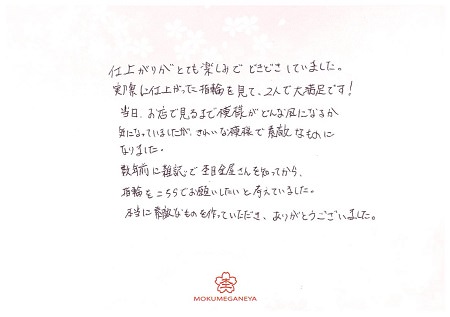 仕上がりがとても楽しみでどきどきしていました。
実際に仕上がった指輪を見て、2人で大満足です！
当日、お店で見るまで模様がどんな風になるか
気になっていましたが、きれいな模様で素敵なものに
なりました。
数年前に雑誌で杢目金屋さんを知ってから、
指輪をこちらでお願いしたいと考えていました。
本当に素敵なものを作っていただき、ありがとうございました。
杢
MOKUMEGANEYA